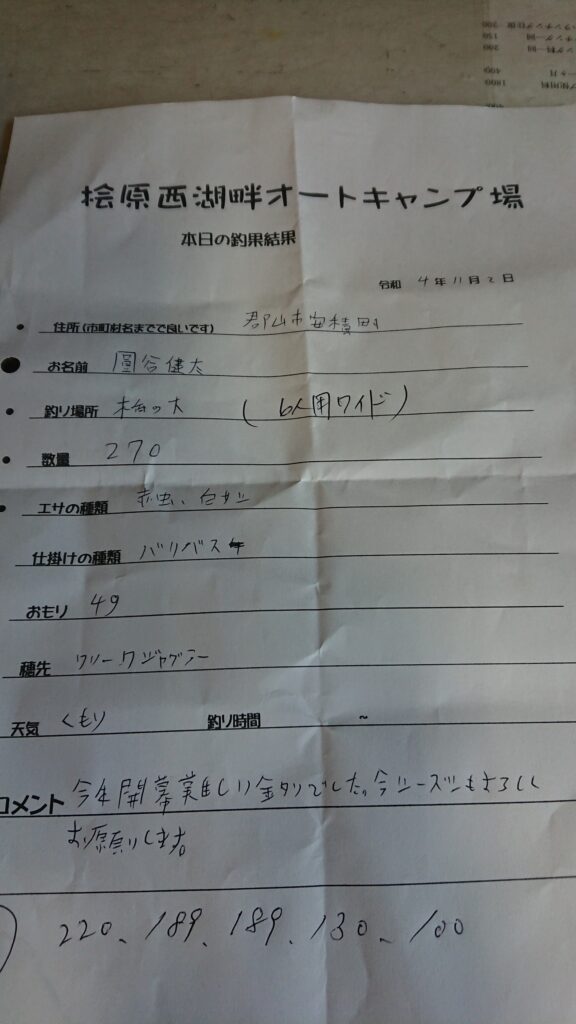 桧原西湖畔オートキャンプ場
本日の釣果結果
令和 4年11月2日
住所(市町村名までで良いです) 郡山市安積町
お名前 圓谷健太
釣り場所 (6人用ワイド)
数量 270
エサの種類 赤虫、白サシ
仕掛けの種類 バリバス
おもり 4g
穂先 クリークジャグラー
天気 くもり 釣り時間 ~
コメント 今年開幕難しい釣りでした。今シーズンもよろしく
お願いします。
220、189、189、130、100